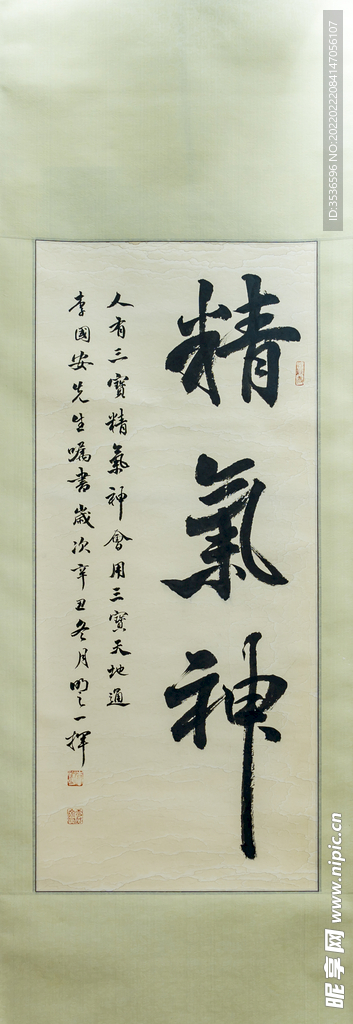 精氣神
人有三寶精氣神會用三寶天地通
李國安先生囑書歲次辛丑冬月明之一揮
ID:3536596 NO:20220222084147056107
昵享网 www.nipic.cn